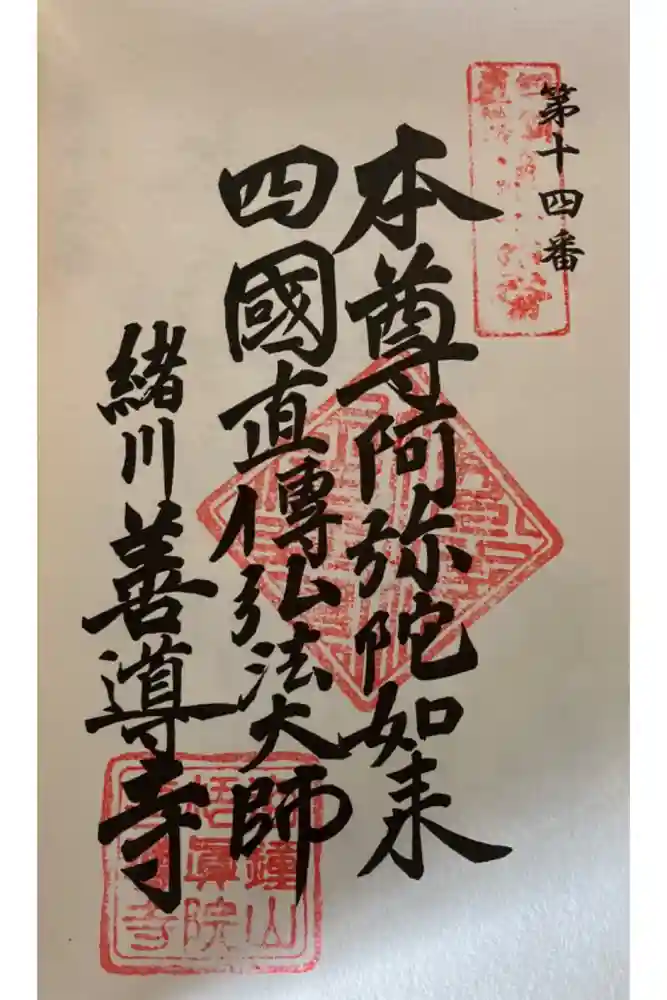 第十四番
本尊阿弥陀如来
四國直傳弘法大師
緒川善導寺
鐘山
悟眞院
寺